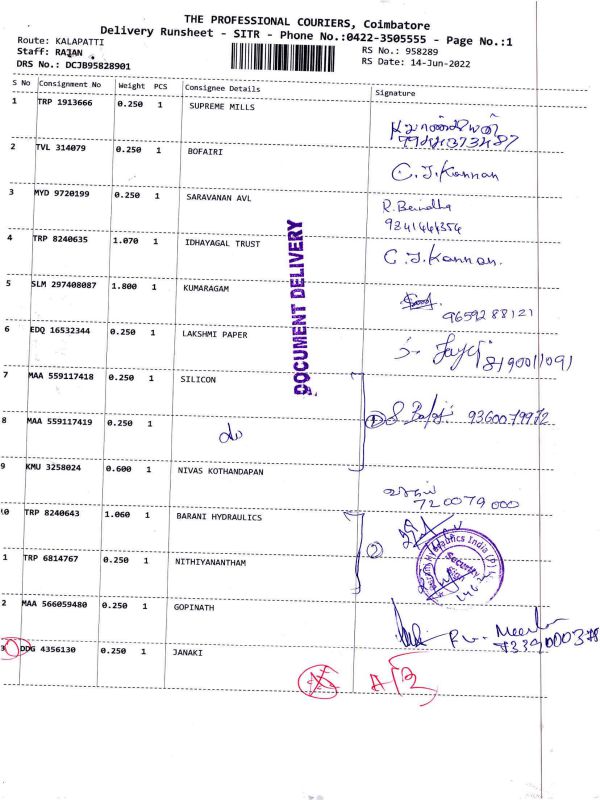 THE PROFESSIONAL COURIERS, Coimbatore
Delivery Runsheet - SITR - Phone No.:0422-3505555 - Page No.:1
Route: KALAPATTI
RS No.: 958289
Staff: RAJAN
RS Date: 14-Jun-2022
DRS No.: DCJB95828901
S No Consignment No Weight PCS Consignee Details Signature
1 TRP 1913666 0.250 1 SUPREME MILLS
2 TVL 314079 0.250 1 BOFAIRI C.J.Kannan
3 MYD 9720199 0.250 1 SARAVANAN AVL
4 TRP 8240635 1.070 1 IDHAYAGAL TRUST C.J.Kannan.
5 SLM 297408087 1.800 1 KUMARAGAM
9659288121
DOCUMENT DELIVERY
6 EDQ 16532344 0.250 1 LAKSHMI PAPER
8190011091
7 MAA 559117418 0.250 1 SILICON
8 MAA 559117419 0.250 1 do 1 9360079972
9 KMU 3258024 0.600 1 NIVAS KOTHANDAPAN
720079000
10 TRP 8240643 1.060 1 BARANI HYDRAULICS
2
Hydraulics India (P)
Security
1 TRP 6814767 0.250 1 NITHIYANANTHAM
2 MAA 566059480 0.250 1 GOPINATH
3 DDG 4356130 0.250 1 JANAKI